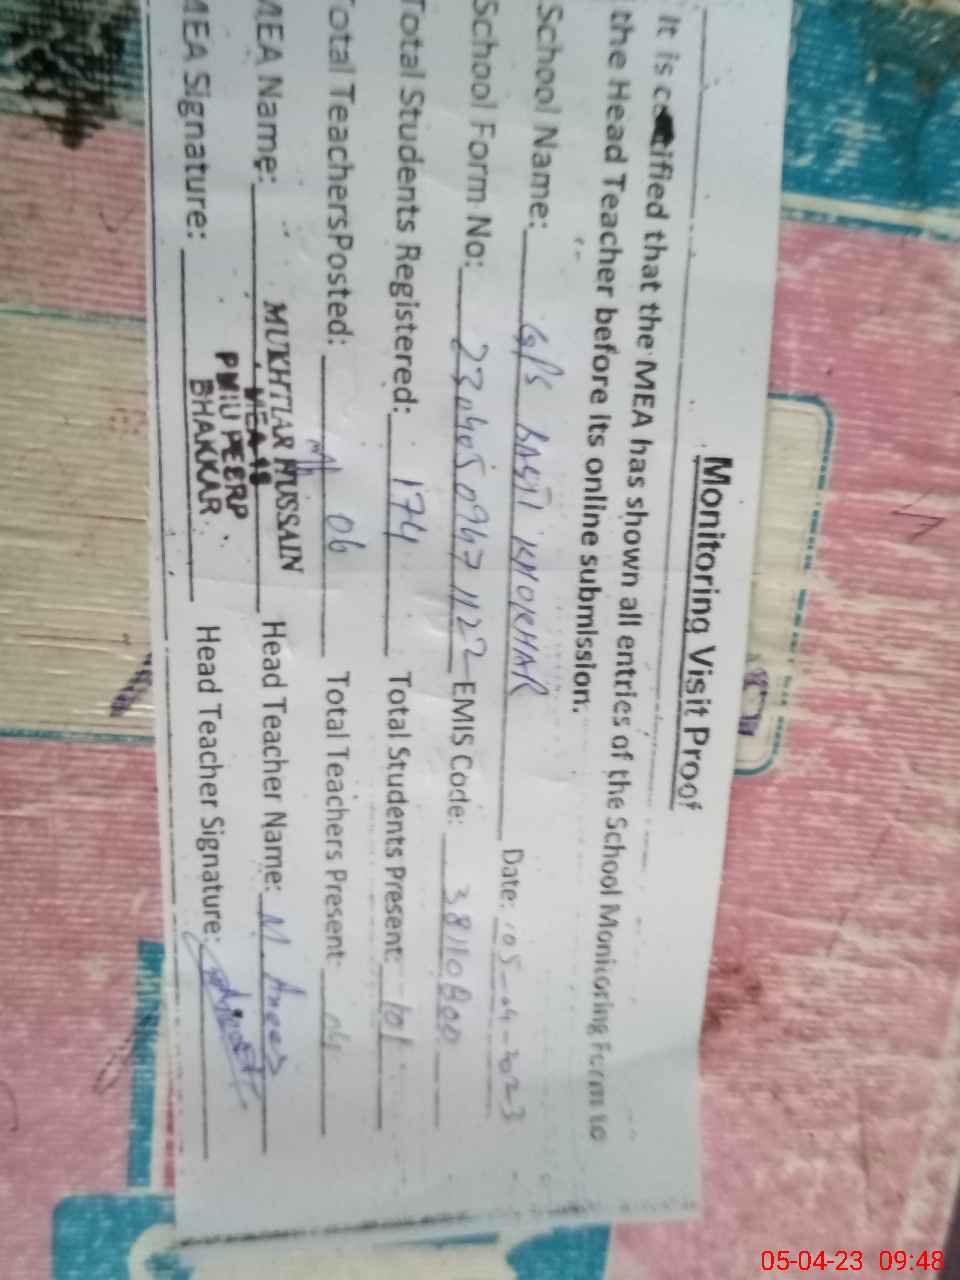 Monitoring Visit Proof
It is certified that the MEA has shown all entries of the School Monitoring Form to
the Head Teacher before its online submission.
School Name: G/PS BASTI KHOKHAR Date: 05-04-2023
School Form No: 2304050967 1122 EMIS Code: 38110800
Total Students Registered: 174 Total Students Present: 101
Total TeachersPosted: 06 Total Teachers Present: 04
MEA Name: MUKHTIAR HUSSAIN Head Teacher Name: M. Anees
MEA 18
MEA Signature: PMIU PEERP Head Teacher Signature:
BHAKKAR
05-04-23 09:48